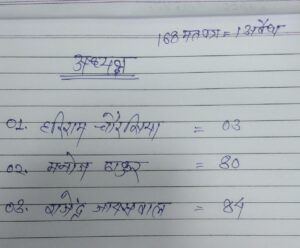 168 मतपत्र = 1 अवैध
अध्यक्ष
01. हरिराम चौरसिया = 03
02. मनोज ठाकुर = 80
03. राजेन्द्र जायसवाल = 84